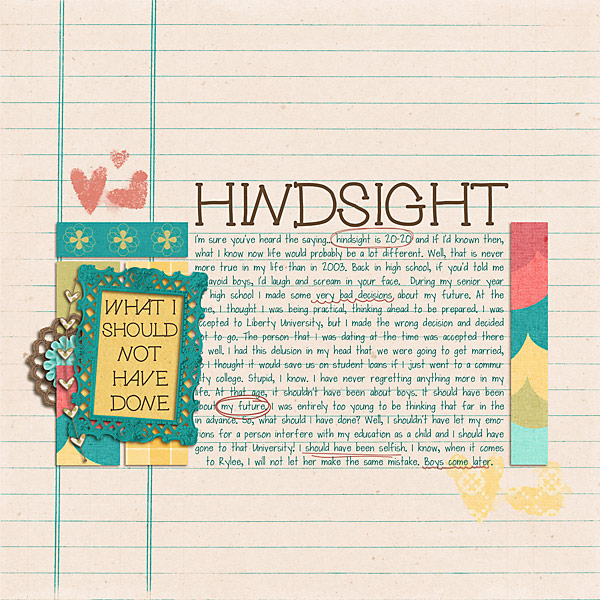 HINDSIGHT
I'm sure you've heard the saying... hindsight is 20-20 and if I'd known then,
what I know now life would probably be a lot different. Well, that is never
more true in my life than in 2003. Back in high school, if you'd told me
avoid boys, I'd laugh and scream in your face. During my senior year
high school I made some very bad decisions about my future. At the
me, I thought I was being practical, thinking ahead to be prepared. I was
cepted to Liberty University, but I made the wrong decision and decided
t to go. The person that I was dating at the time was accepted there
well. I had this delusion in my head that we were going to get married,
I thought it would save us on student loans if I just went to a commu-
ity college. Stupid, I know. I have never regretting anything more in my
life. At that age, it shouldn't have been about boys. It should have been
about my future. I was entirely too young to be thinking that far in the
in advance. So, what should I have done? Well, I shouldn't have let my emo-
tions for a person interfere with my education as a child and I should have
gone to that University! I should have been selfish. I know, when it comes
to Rylee, I will not let her make the same mistake. Boys come later.
WHAT I
SHOULD
NOT
HAVE
DONE